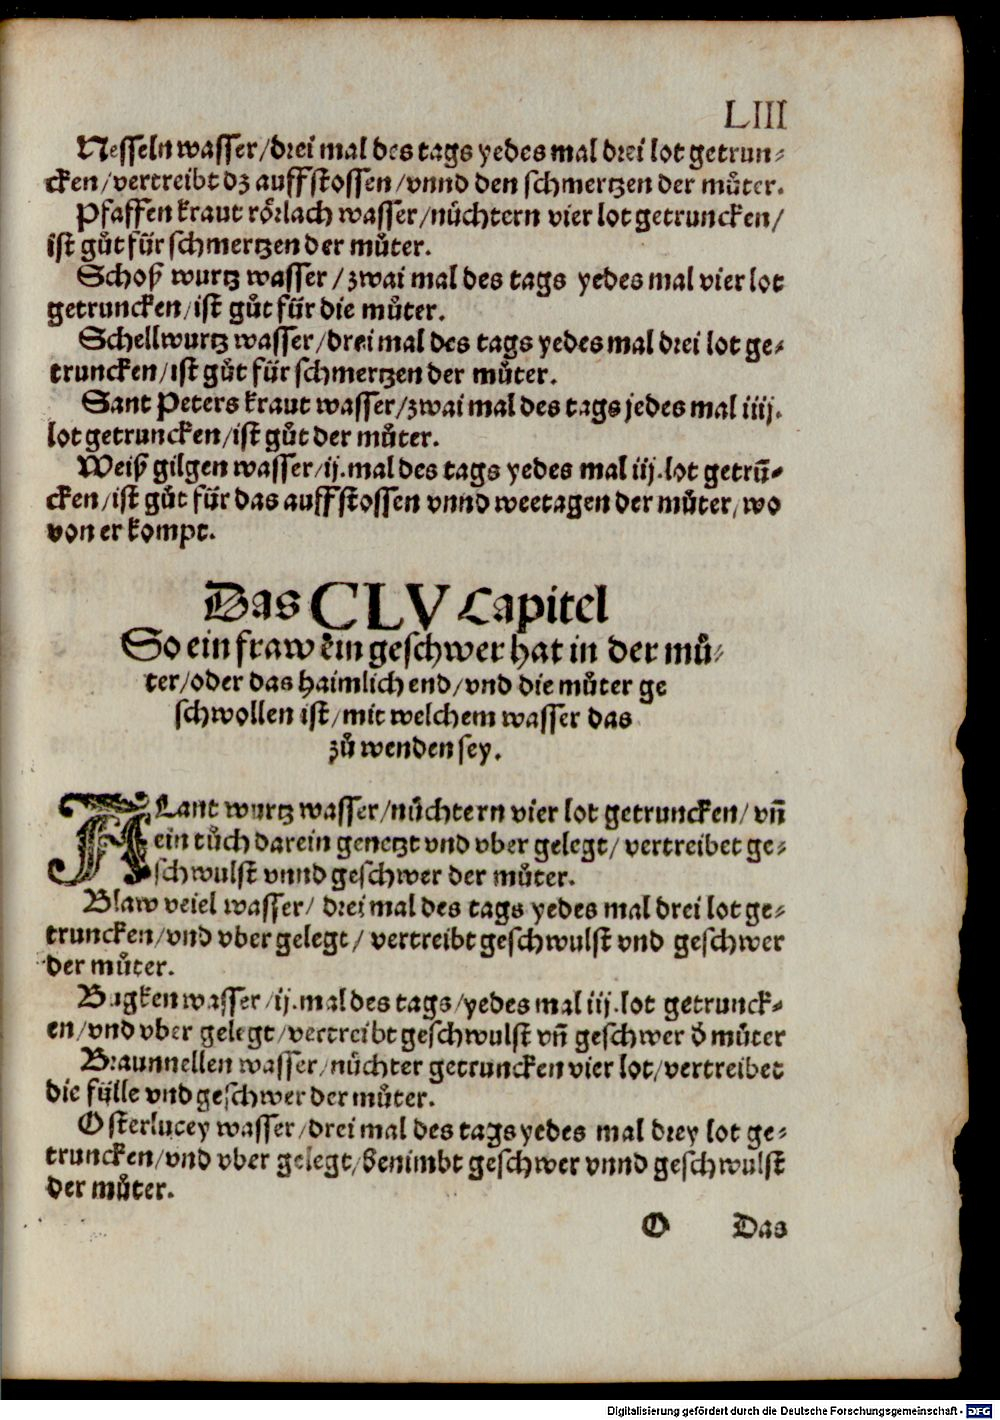 LIII
Nesseln wasser/drei mal des tags yedes mal drei lot getrun⸗
cken/vertreibt dz auffstossen/vnnd den schmertzen der můter.
Pfaffen kraut rőrlach wasser/nůchtern vier lot getruncken/
ist gůt für schmertzen der můter.
Schoß wurtz wasser/zwai mal des tags yedes mal vier lot
getruncken/ist gůt für die můter.
Schellwurtz wasser/drei mal des tags yedes mal drei lot ge⸗
truncken/ist gůt für schmertzen der můter.
Sant Peters kraut wasser/zwai mal des tags jedes mal iiij.
lot getruncken/ist gůt der můter.
Weiß gilgen wasser/ij.mal des tags yedes mal iij.lot getrū⸗
cken/ist gůt für das auffstossen vnnd weetagen der můter/wo
von er kompt.
Das CLV Capitel
So ein fraw ein geschwer hat in der mů⸗
ter/oder das haimlich end/vnd die můter ge
schwollen ist/mit welchem wasser das
zů wenden sey.
ALant wurtz wasser/nůchtern vier lot getruncken/vñ
ein tůch darein genetzt vnd vber gelegt/vertreibet ge⸗
schwulst vnnd geschwer der můter.
Blaw veiel wasser/drei mal des tags yedes mal drei lot ge⸗
truncken/vnd vber gelegt/vertreibt geschwulst vnd geschwer
der můter.
Bagken wasser/ij.mal des tags/yedes mal iij.lot getrunck⸗
en/vnd vber gelegt/vertreibt geschwulst vñ geschwer d̄ můter
Braunnellen wasser/nůchter getruncken vier lot/vertreibet
die fülle vnd geschwer der můter.
Osterlucey wasser/drei mal des tags yedes mal drey lot ge⸗
truncken/vnd vber gelegt/benimbt geschwer vnnd geschwulst
der můter.
O Das
Digitalisierung gefördert durch die Deutsche Forschungsgemeinschaft - DFG